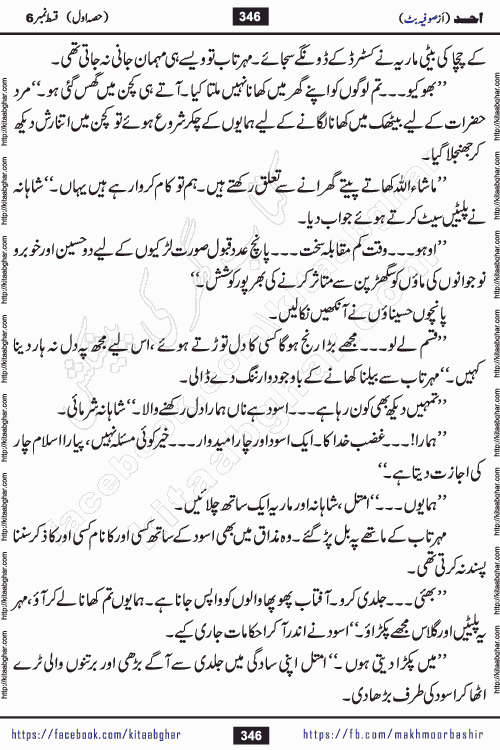 احسد (از صوفیہ بٹ) 346 (حصہ اول) قسط نمبر 6
کے چچا کی بیٹی ماریہ نے کسٹرڈ کے ڈونگے سجائے۔ مہر تاب تو ویسے ہی مہمان جانی نہ جاتی تھی۔
”بھوکیو۔۔۔ تم لوگوں کو اپنے گھر میں کھانا نہیں ملتا کیا۔ آتے ہی کچن میں گھس گئی ہو۔“ مرد
حضرات کے لیے بیٹھک میں کھانا لگانے کے لیے ہمایوں کے چکر شروع ہوئے تو کچن میں اتنا رش دیکھ
کر جھنجلا گیا۔
”ماشاء اللہ کھاتے پیتے گھرانے سے تعلق رکھتے ہیں۔ ہم تو کام کروا رہے ہیں یہاں۔“ شاہانہ
نے پلیٹیں سیٹ کرتے ہوئے جواب دیا۔
”اوہو۔۔۔ وقت کم مقابلہ سخت۔۔۔۔ پانچ عدد قبول صورت لڑکیوں کے لیے دو حسین اور خوبرو
نوجوانوں کی ماؤں کو سگھڑپن سے متاثر کرنے کی بھرپور کوشش۔“
پانچوں حسیناؤں نے آنکھیں نکالیں۔
”قسم لے لو۔۔۔ مجھے بڑا رنج ہوگا کسی کا دل توڑتے ہوئے، اس لیے مجھ پہ دل نہ ہار دینا
کہیں۔“ مہر تاب سے بیلنا کھانے کے باوجود وارننگ دے ڈالی۔
”تمہیں دیکھ بھی کون رہا ہے۔۔۔ اسود ہے ناں ہمارا دل رکھنے والا۔“ شاہانہ شرمائی۔
”ہمارا!۔۔۔ غضب خدا کا۔ ایک اسود اور چار امیدوار۔۔۔ خیر کوئی مسئلہ نہیں، پیارا اسلام چار
کی اجازت دیتا ہے۔“
”ہمایوں۔۔۔“ امتل، شاہانہ اور ماریہ ایک ساتھ چلائیں۔
مہر تاب کے ماتھے پہ بل پڑ گئے۔ وہ مذاق میں بھی اسود کے ساتھ کسی اور کا نام کسی اور کا ذکر سننا
پسند نہ کرتی تھی۔
”بھئی۔۔۔ جلدی کرو۔ آفتاب پھوپھا والوں کو واپس جانا ہے۔ ہمایوں تم کھانا لے کر آؤ، مہر
یہ پلیٹیں اور گلاس مجھے پکڑاؤ۔“ اسود نے اندر آ کر احکامات جاری کیے۔
”میں پکڑا دیتی ہوں۔“ امتل اپنی سادگی میں جلدی سے آگے بڑھی اور برتنوں والی ٹرے
اٹھا کر اسود کی طرف بڑھا دی۔
https://facebook.com/kitaabghar 346 https://fb.com/makhmoorbashir
http://kitaabghar.com